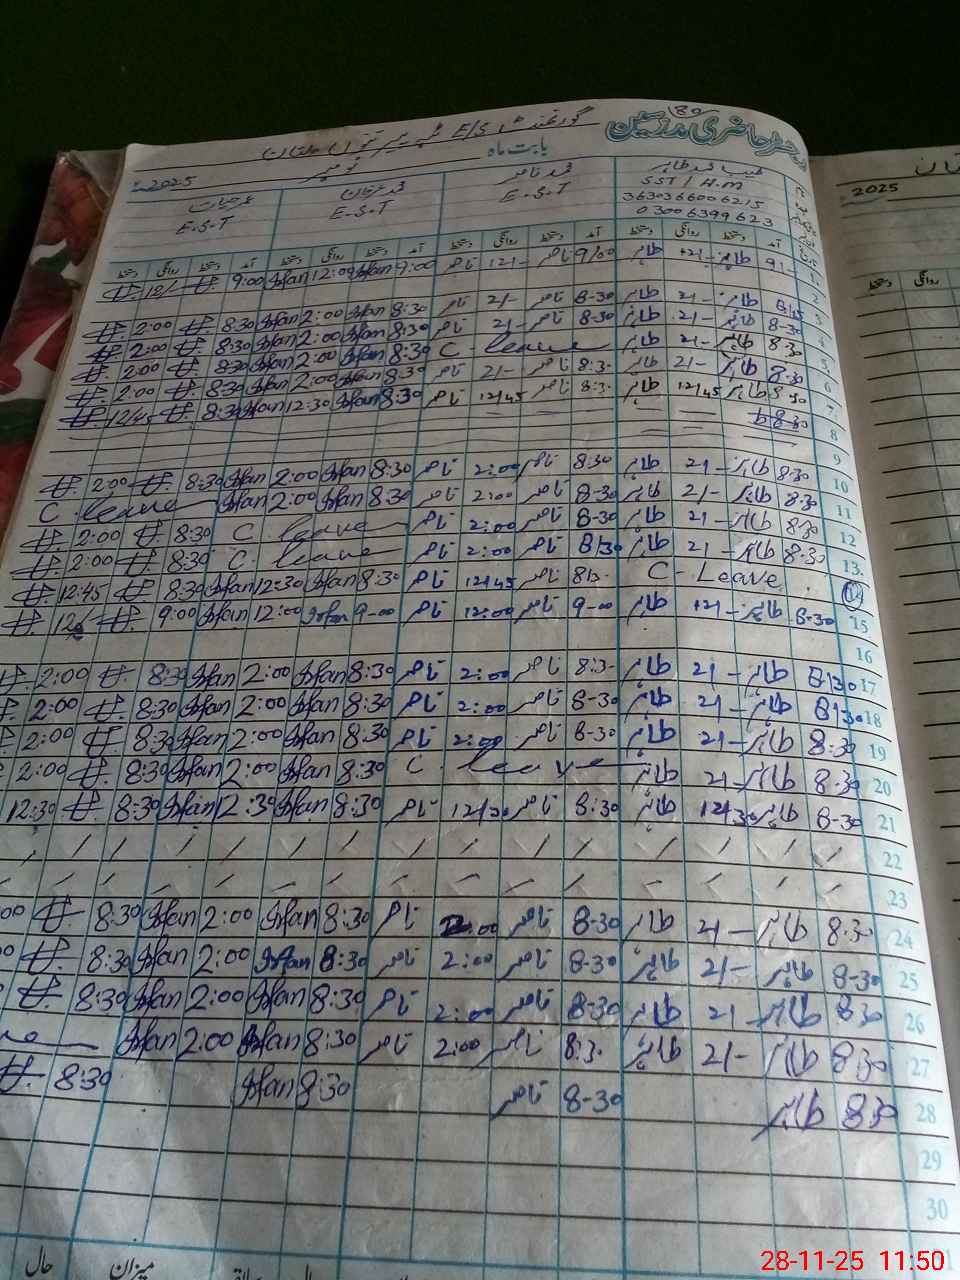 180
رجسٹر حاضری مدرسین
بابت ماہ نومبر 2025ء
طیب محمد طاہر
SST / H.M
3630366006215
03006399623
محمد ناصر
E.S.T
محمد عرفان
E.S.T
E.S.T
آمد دستخط روانگی دستخط آمد دستخط روانگی دستخط آمد دستخط روانگی دستخط دستخط روانگی دستخط
1 9/- طاہر 12/- طاہر 9/00 ناصر 12/- ناصر 9:00 Irfan 12:00 Irfan 9:00 12/-
2
3 8:15 طاہر 2/- طاہر 8-30 ناصر 2/- ناصر 8:30 Irfan 2:00 Irfan 8:30 2:00
4 8-30 طاہر 2/- طاہر 8-30 ناصر 2/- ناصر 8:30 Irfan 2:00 Irfan 8:30 2:00
5 8:30 طاہر 2/- طاہر C-leave 8:30 Irfan 2:00 Irfan 8:30 2:00
6 8:30 طاہر 2/- طاہر 8:3- ناصر 2/- ناصر 8:30 Irfan 2:00 Irfan 8:30 2:00
7 8:30 طاہر 12/45 طاہر 8:3- ناصر 12/45 ناصر 8:30 Irfan 12:30 Irfan 8:30 12/45
8
9
10 8:30 طاہر 2/- طاہر 8:30 ناصر 2:00 ناصر 8:30 Irfan 2:00 Irfan 8:30 2:00
11 8:30 طاہر 2/- طاہر 8-30 ناصر 2:00 ناصر 8:30 Irfan 2:00 Irfan C. leave
12 8:30 طاہر 2/- طاہر 8-30 ناصر 2:00 ناصر C. leave 8:30 2:00
13 8:30 طاہر 2/- طاہر 8:30 ناصر 2:00 ناصر C. leave 8:30 2:00
14 C-Leave 8:3- ناصر 12/45 ناصر 8:30 Irfan 12:30 Irfan 8:30 12:45
15 8-30 طاہر 12/- طاہر 9-00 ناصر 12:00 ناصر 9-00 Irfan 12:00 Irfan 9:00
16
17 8:30 طاہر 2/- طاہر 8:3- ناصر 2:00 ناصر 8:30 Irfan 2:00 Irfan 8:30 2:00
18 8:30 طاہر 2/- طاہر 8-30 ناصر 2:00 ناصر 8:30 Irfan 2:00 Irfan 8:30 2:00
19 8:30 طاہر 2/- طاہر 8-30 ناصر 2:00 ناصر 8:30 Irfan 2:00 Irfan 8:30 2:00
20 8:30 طاہر 2/- طاہر C. leave 8:30 Irfan 2:00 Irfan 8:30 2:00
21 8-30 طاہر 12/30 طاہر 8:30 ناصر 12/30 ناصر 8:30 Irfan 12:30 Irfan 8:30 12:30
22
23
24 8:30 طاہر 2/- طاہر 8-30 ناصر 2:00 ناصر 8:30 Irfan 2:00 Irfan 8:30
25 8-30 طاہر 2/- طاہر 8-30 ناصر 2:00 ناصر 8:30 Irfan 2:00 Irfan 8:30
26 8:30 طاہر 2/- طاہر 8-30 ناصر 2:00 ناصر 8:30 Irfan 2:00 Irfan 8:30
27 8:30 طاہر 2/- طاہر 8:3- ناصر 2:00 ناصر 8:30 Irfan 2:00 Irfan
28 8:30 طاہر 8-30 ناصر 8:30 Irfan 8:30
29
30
میزان حال
2025
دستخط روانگی
28-11-25 11:50